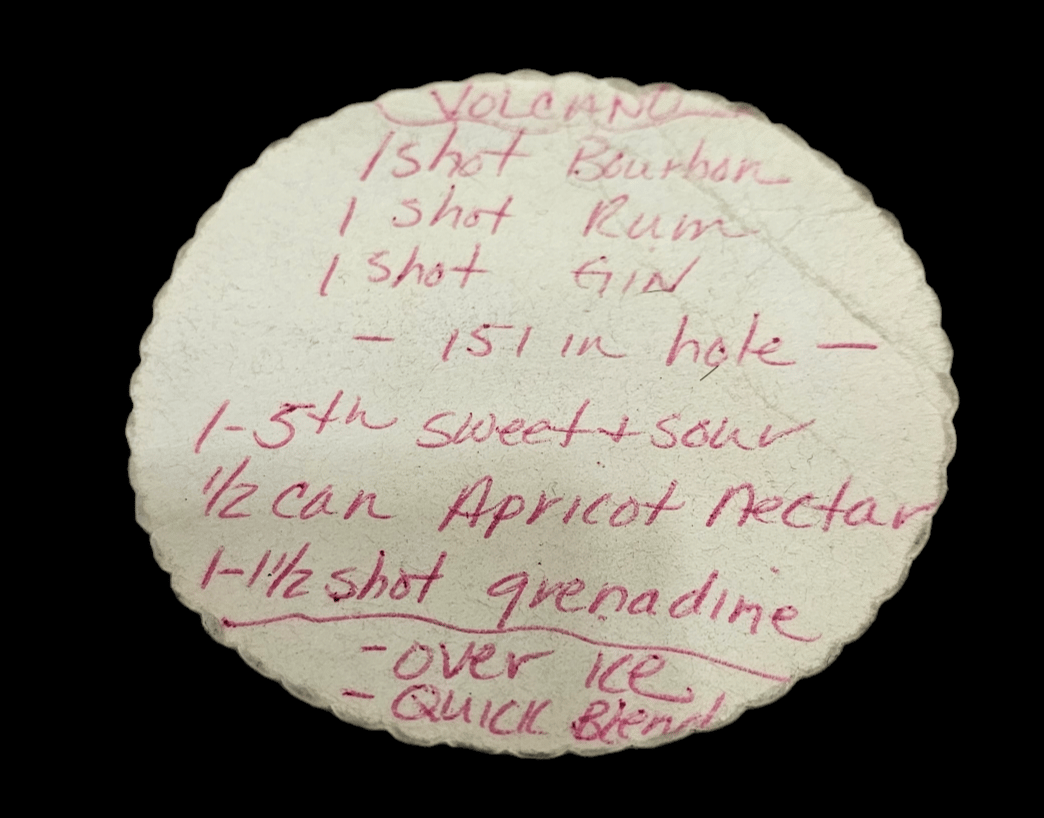 VOLCANO
1 shot Bourbon
1 shot Rum
1 shot GIN
- 151 in hole -
1-5th sweet + sour
1/2 can Apricot Nectar
1-1 1/2 shot grenadine
- over ice
- QUICK Blend